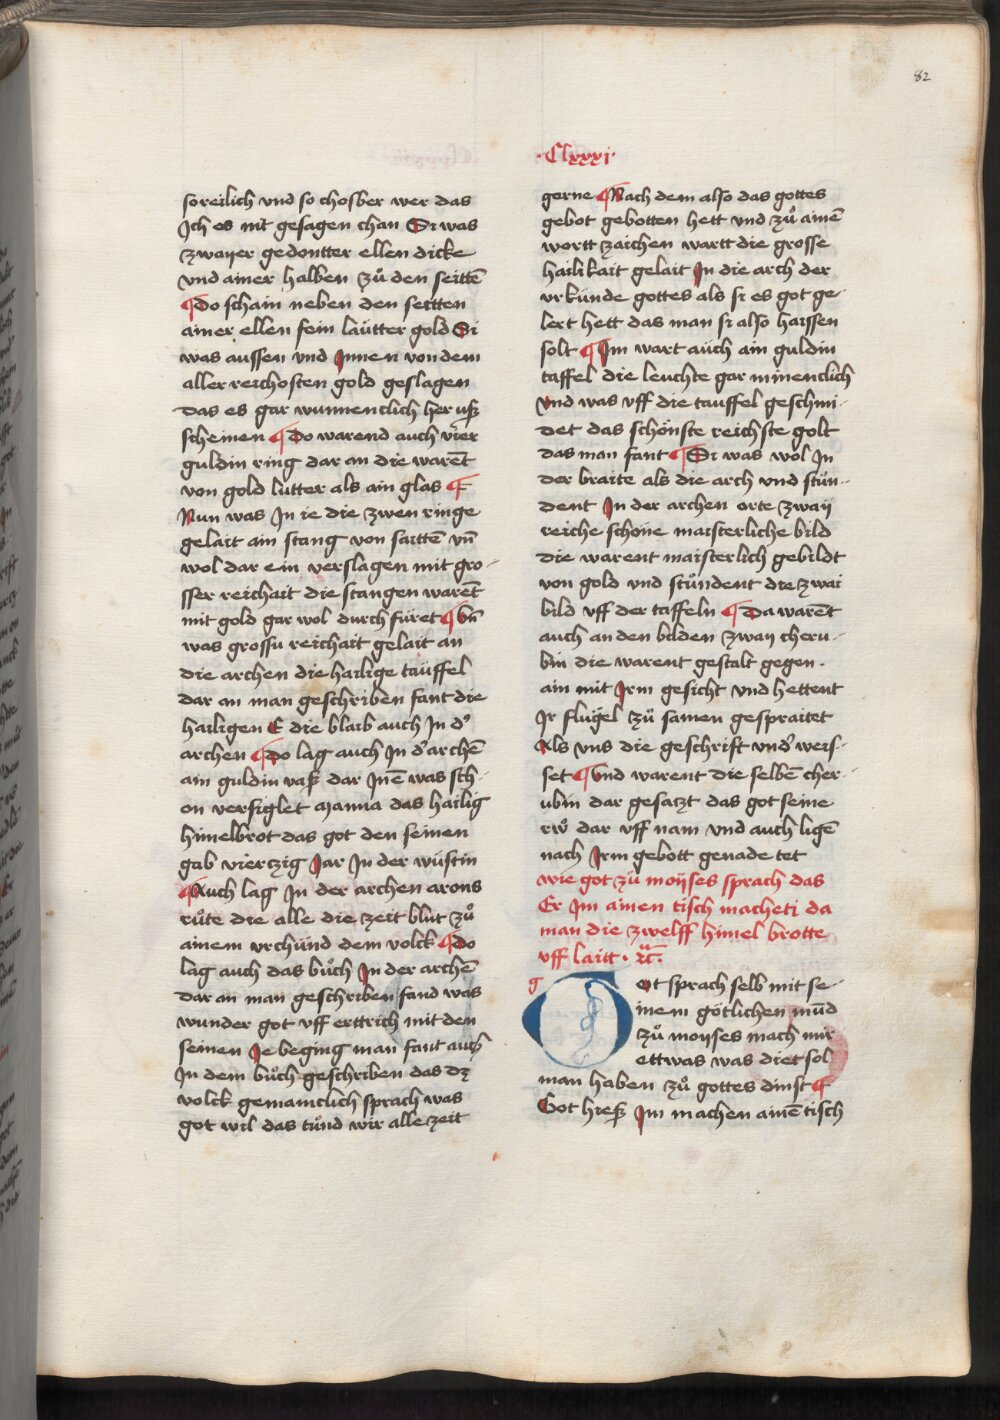 82
·Clxxxi·
so reilich vnd so chosber wer das
Jch es nit gesagen chan Si was
zwayer gedontter ellen dicke
vnd ainer halben zuͦ den seittē
¶Do schain neben den seitten
ainer ellen fein laütter gold Si
was aussen vnd Jnnen von dem
aller reichosten gold geslagen
das es gar wunnenclich her uß
scheinen ¶ Do warend auch vier
guldin ring dar an die warēt
von gold lutter als ain glas ¶
Nun was Jn ie die zwen ringe
gelait ain stang von saittē vn̄
wol dar ein verslagen mit gro-
sser reichait die stangen warēt
mit gold gar wol durch füret ¶ Vn̄
was grossu reichait gelait an
die archen die hailige tauffel
dar an man geschriben fant die
hailigen E die blaib auch Jn d'
archen ¶ Do lag auch Jn d' archē
ain guldin vaß dar Jnē was sch-
on versiglet manna das hailig
himelbrot das got den seinen
gab vierzig Jar Jn der wüstin
¶Auch lag Jn der archen arons
ruͤte die alle die zeit blut zuͦ
ainem vrchünd dem volck ¶Do
lag auch das buͦch Jn der archē
dar an man geschriben fand was
wunder got vff erttrich mit den
seinen Je beging man fant auch
Jn dem buͦch geschriben das dz
volck gemainclich sprach was
got wil das tuͦnd wir alle zeit
gerne ¶Nach dem also das gottes
gebot gebotten hett vnd zuͦ ainē
wortt zaichen wartt die grosse
hailikait gelait Jn die arch der
vrkünde gottes als si es got ge-
lert hett das man si also haissen
solt ¶ Jm wart auch ain guldin
taffel die leuchte gar minenclich
vnd was vff die tauffel geschmi-
det das schönste reichste golt
das man fant ¶Si was wol Jn
der braite als die arch vnd stuͦn-
dent Jn der archen orte zway
reiche schone maisterliche bild
die warent maisterlich gebildt
von gold vnd stuͦndent die zwai
bild vff der taffeln ¶ Da warēt
auch an den bilden zway cheru-
bin die warent gestalt gegen
ain mit Jrm gesicht vnd hettent
Jr flügel zü samen gespraitet
Als vns die geschrift vnd' weis-
set ¶Vnd warent die selbē cher-
ubin dar gesatzt das got seine
rwͦ dar vff nam vnd auch ligē
nach Jrm gebott genade tet
wie got zü moyses sprach das
Er Jm ainen tisch macheti da
man die zwelff himel brotte
vff laitt · ꝛc̄·
g
Got sprach selb mit se-
inem götlichen mūd
zuͦ moyses mach mir
ettwas was diet sol
man haben zuͦ gottes dinst ¶
Got hieß Jm machen ainē tisch